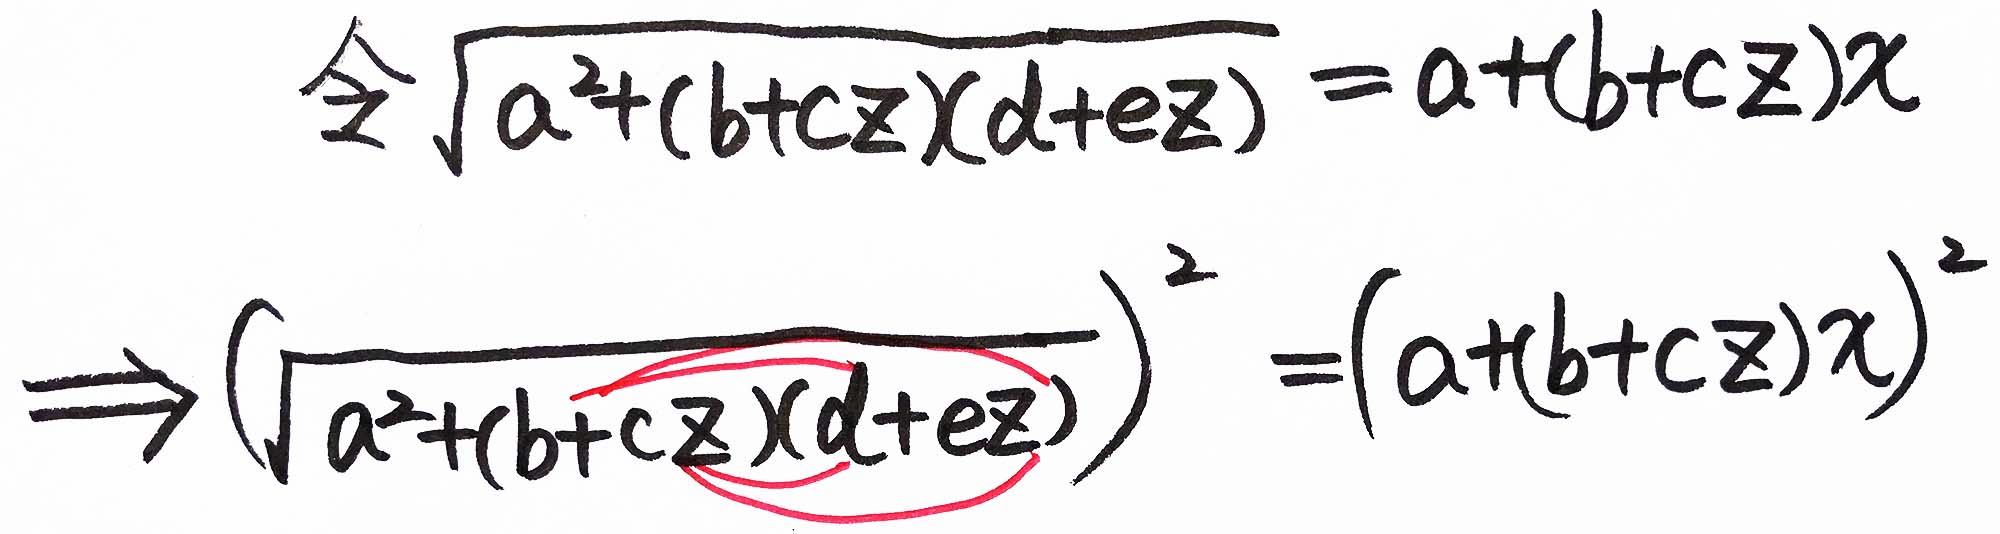 令√(a²+(b+cz)(d+ez)) = a+(b+cz)x
⇒(√(a²+(b+cz)(d+ez)))² =(a+(b+cz)x)²